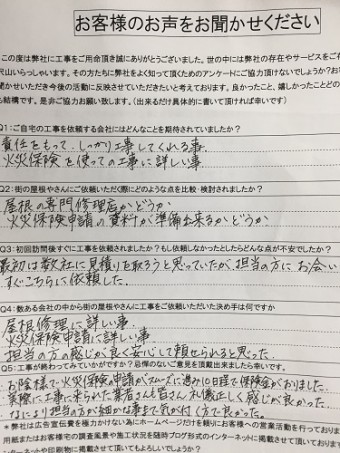 お客様のお声をお聞かせください
この度は弊社に工事をご用命頂き誠にありがとうございました。世の中には弊社の存在やサービスをご存
沢山いらっしゃいます。その方たちに弊社をよく知って頂くためのアンケートにご協力頂けないでしょうか?お
聞かせいただき今後の活動に反映させていただきたいと考えております。良かったこと、嬉しかったことどの
も結構です。是非ご協力お願い致します。(出来るだけ具体的に書いて頂ければ幸いです)
Q1:ご自宅の工事を依頼する会社にはどんなことを期待されていましたか?
責任をもって、しっかり工事してくれる事。
火災保険を使っての工事に詳しい事
Q2:街の屋根やさんにご依頼いただく際にどのような点を比較・検討されましたか?
屋根の専門修理店かどうか
火災保険申請の資料が準備出来るかどうか
Q3:初回訪問後すぐに工事を依頼されましたか?もし依頼しなかったとしたらどんな点が不安でしたか?
最初は数社に見積りを取ろうと思っていたが、担当の方にお会い
すぐこちらに依頼した。
Q4:数ある会社の中から街の屋根やさんに工事をご依頼いただいた決め手は何ですか
屋根修理に詳しい事。
火災保険申請に詳しい事。
担当の方の感じが良く安心して頼せられると思った。
Q5:工事が終わってみていかがですか?忌憚のないご意見を頂戴出来ましたら幸いです。
お陰様で火災保険の申請がスムーズに進み10日程で保険金がおりました。
実際に工事に来られた業者さんも皆さん礼儀正しく感じが良かった。
なにより担当の方が細かな事まで気が付く方で良かった。
*弊社は広告宣伝費を極力かけない為にホームページだけを頼りにお客様への営業活動を行っております
用紙またはお客様宅の調査風景や施工状況を随時ブログ形式のインターネットに掲載させて頂いております
ンターネットや印刷物に掲載させて頂いてもよろしいでしょうか?